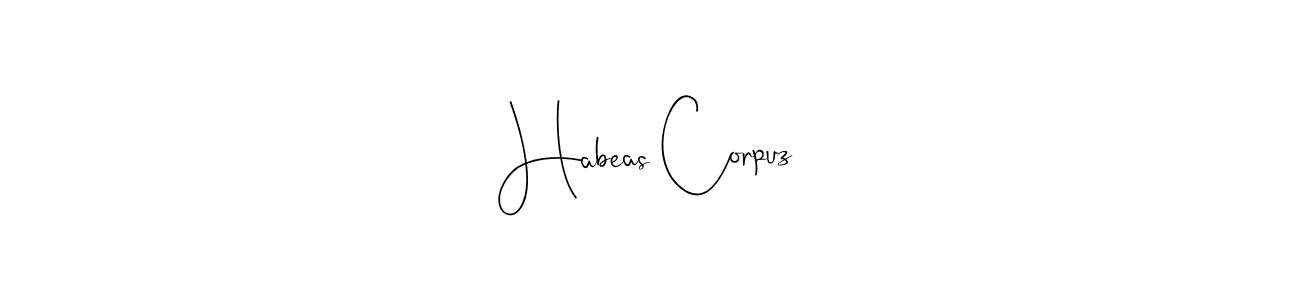 Habeas Corpuz